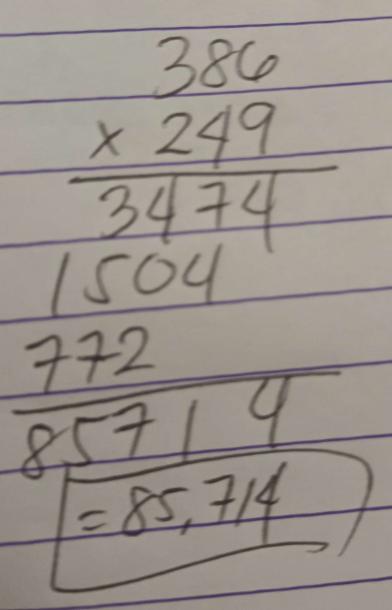 386
x 249
3474
1504
772
85714
= 85,714